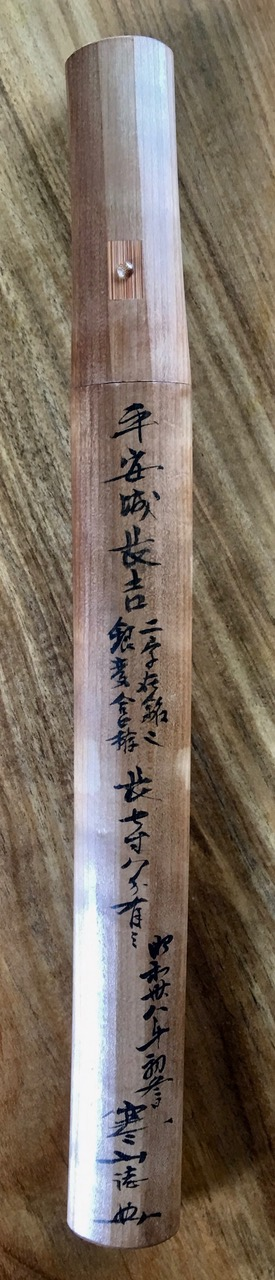 平安城長吉
二字在銘之
長七寸八分有之
昭和卅八年初
寒山誌